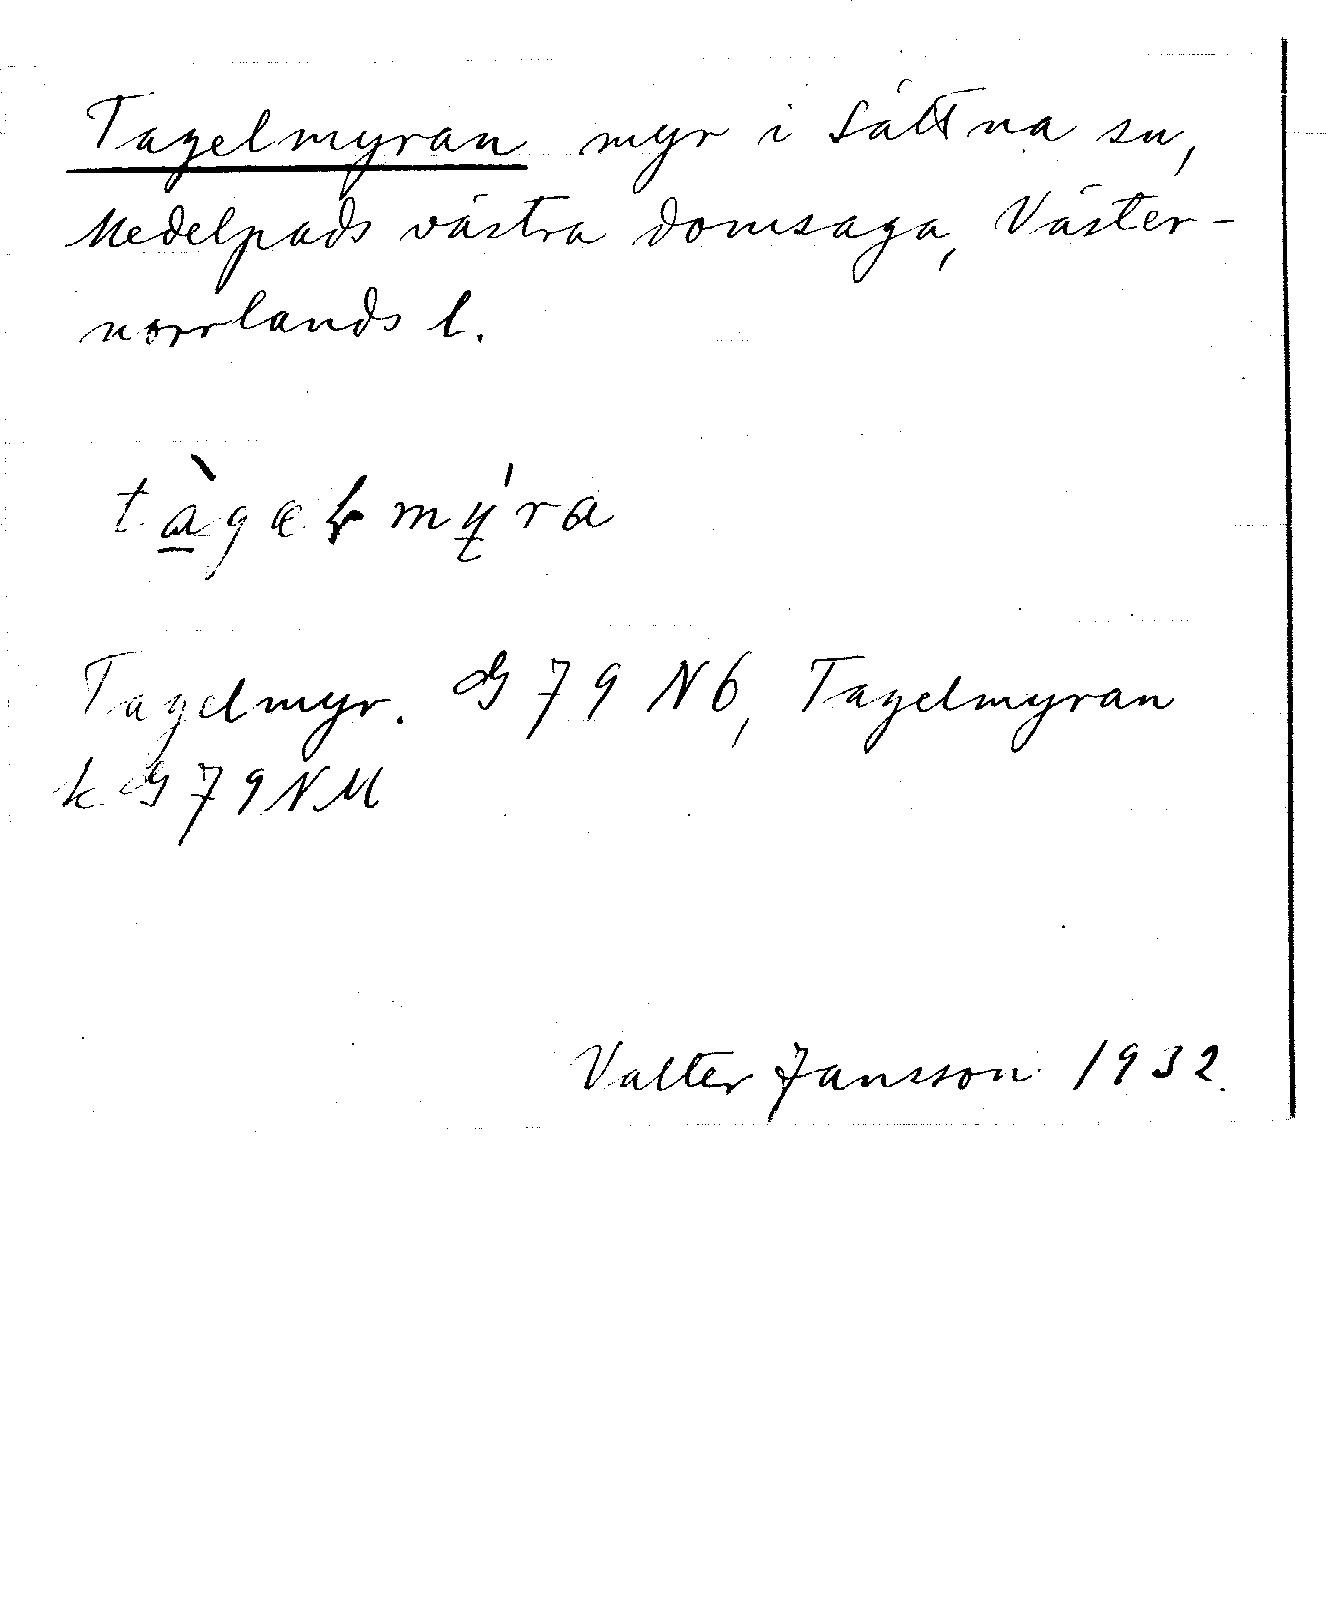 Tagelmyran myr i Sättna sn,
Medelpads västra domsaga, Väster-
norrlands l.
tàgæɽmýra
Tagelmyr. G 79 N6, Tagelmyran
k G 79 NM
Valter Jansson 1932.